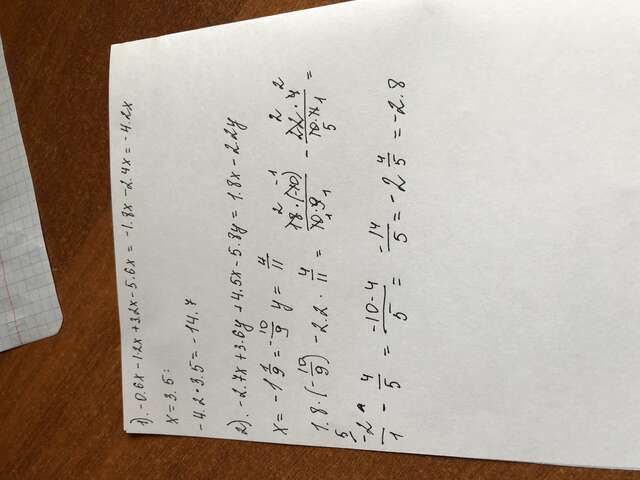 1). -0.6x - 1.2x + 3.2x - 5.6x = -1.8x - 2.4x = -4.2x
x = 3.5:
-4.2 · 3.5 = -14.7
2). -2.7x + 3.6y + 4.5x - 5.8y = 1.8x - 2.2y
x = -1 1/9 = -10/9 y = 4/11
1.8 · (-10/9) - 2.2 · 4/11 = 18 · (-10)/10 · 9 - 22 · 4/10 · 11 =
-2/1 - 4/5 = -10-4/5 = -14/5 = -2 4/5 = -2.8